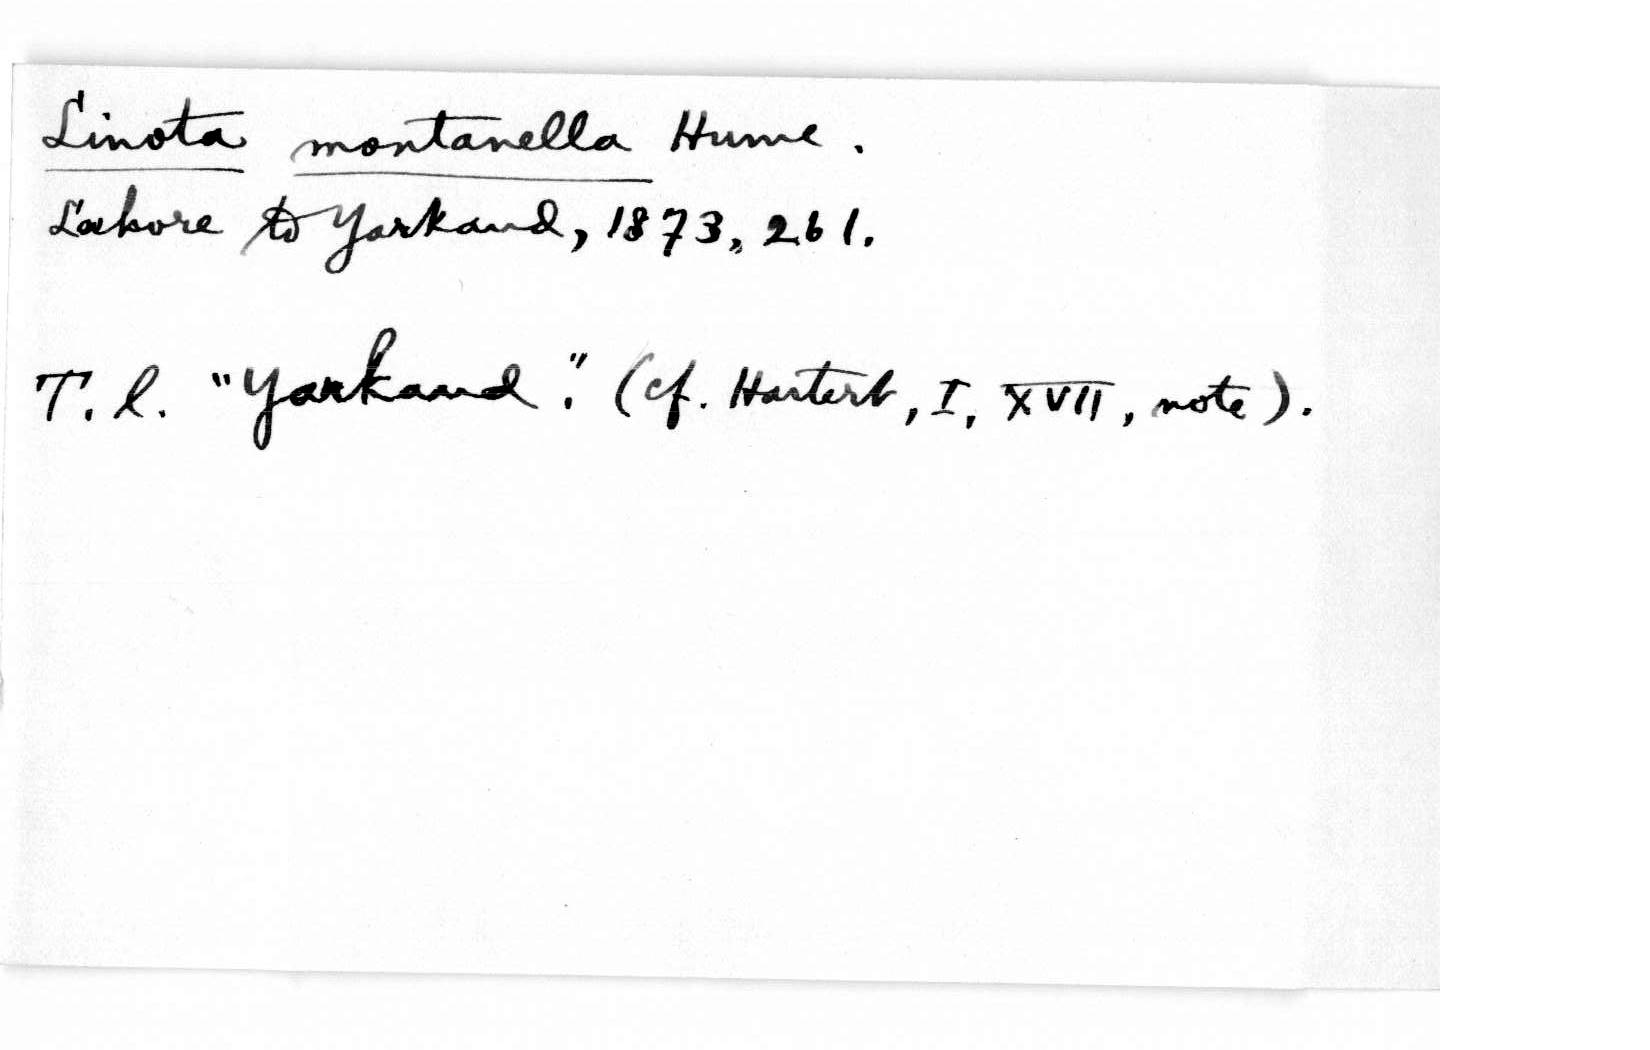 Linota montanella Hume.
Lahore to Yarkand, 1873, 261.
T. l. "Yarkand". (cf. Hartert, I, XVII, note).